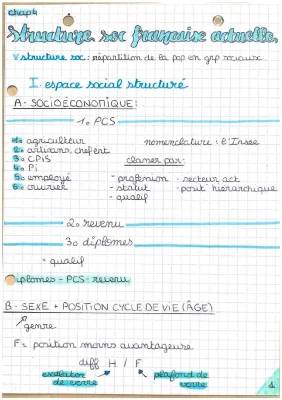 chap4
structure soc française actuelle.
structure soc : répartition de la pop en grp sociaux
I. espace social structuré
A - SOCIOÉCONOMIQUE :
1. PCS
1. agriculteur
2. artisans, chef ent
3. CPIS
4. Pi
5. employé
6. ouvrier
nomenclature : l'Insee
classer par :
- profession
- statut
- qualif
- secteur act
- posit° hiérarchique
2. revenu
3. diplômes
- qualif
Diplomes - PCS - revenu
B - SEXE + POSITION CYCLE DE VIE (ÂGE)
genre
F = position moins avantageuse
diff H / F
de verre
plafond de
verre
1